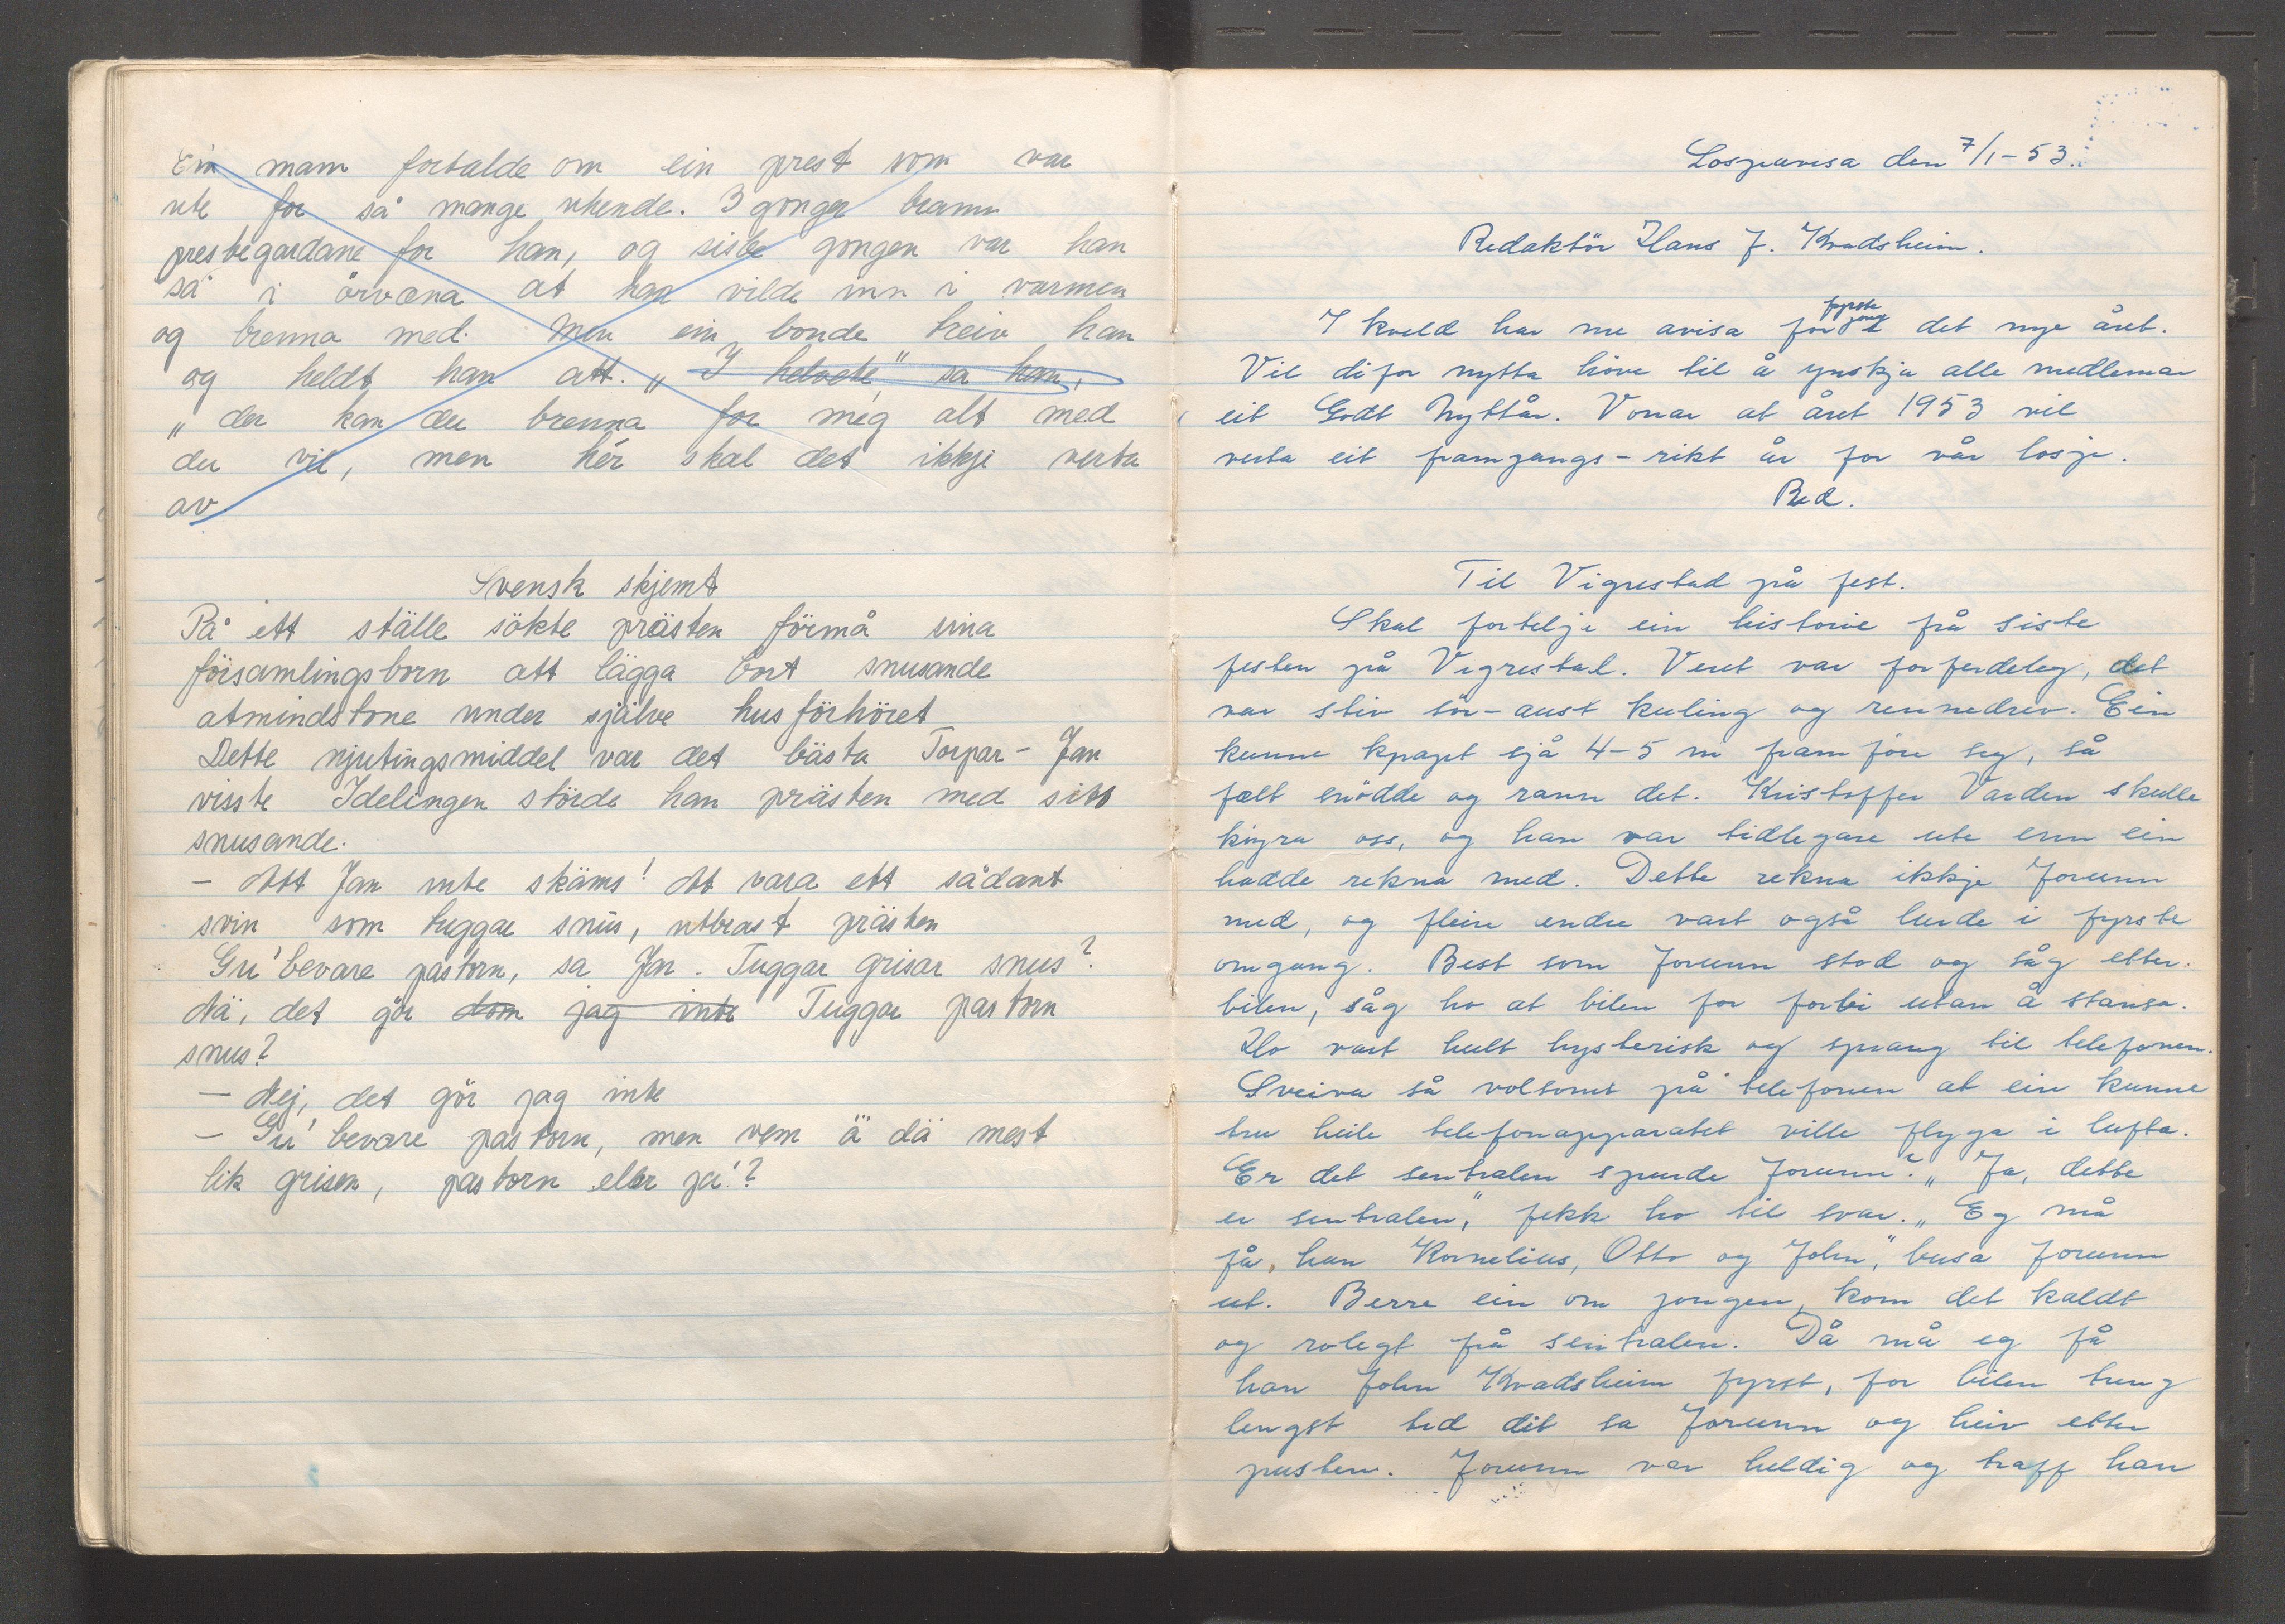 Ein mann fortalde om ein prest som var
ute for så mange uhende. 3 gonger brann
prestegardane for han, og siste gongen var han
så i örvæna at han vilde inn i varmen
og brenna med. Men ein bonde treiv han
og heldt han att. „I helvete," sa han,
„der kan du brenna for meg alt med
du vil, men hér skal det ikkje verta
av
Svensk skjemt
På ett ställe sökte prästen förmå sina
församlingsborn att lägga bort snusande
atmindstone under själve husförhöret
Dette njutingsmiddel var det bästa Torpar-Jan
visste Idelingen störde han prästen med sitt
snusande.
- Att Jan inte skäms! Att vara ett sådant
svin som tuggar snus, utbrast prästen
Gu' bevare pastorn, sa Jan. Tuggar grisar snus?
Nä, det gör dom jag inte Tuggar pastorn
snus?
- Nej, det gör jag inte
- Gu' bevare pastorn, men vem ä dä mest
lik grisen, pastorn eller ja'?
Losjeavisa den 7/1-53.
Redaktör Hans J. Kvadsheim.
I kveld har me avisa for fyrste gong i det nye året.
Vil difor nytta höve til å ynskja alle medlemar
eit Godt Nyttår. Vonar at året 1953 vil
verta eit framgangs-rikt år for vår losje.
Red.
Til Vigrestad på fest.
Skal fortelja ein historie frå siste
festen på Vigrestad. Veret var forferdeleg, det
var stiv sör-aust kuling og rennedrev. Ein
kunne knapt sjå 4-5 m fram före seg, så
fælt snödde og rann det. Kristoffer Varden skulle
köyra oss, og han var tidlegare ute enn ein
hadde rekna med. Dette rekna ikkje Jorunn
med, og fleire andre vart også lurde i fyrste
omgang. Best som Jorunn stod og såg etter
bilen, såg ho at bilen for forbi utan å stansa.
Ho vart heilt hysterisk og sprang til telefonen.
Sveiva så volsomt på telefonen at ein kunne
tru heile telefonapparatet ville flyga i lufta.
Er det sentralen spurde Jorunn? „Ja, dette
er sentralen," fekk ho til svar. „Eg må
få, han Kornelius, Otto og John," busa Jorunn
ut. Berre ein om gongen, kom det kaldt
og rolegt frå sentralen. Då må eg få
han John Kvadsheim fyrst, for bilen treng
lengst tid dit sa Jorunn og heiv etter
pusten. Jorunn var heldig og traff han